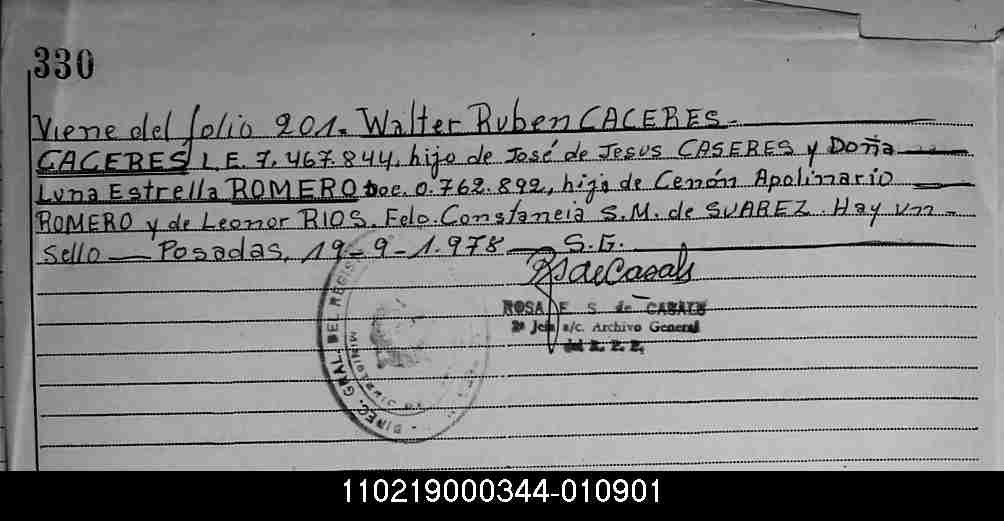 330
Viene del folio 201. Walter Ruben CACERES
CACERES L.E. 7.467.844, hijo de José de Jesus CASERES y Doña
Luna Estrella ROMERO Doc. 0.762.892, hija de Cenón Apolinario
ROMERO y de Leonor RIOS. Fdo. Constancia S.M. de SUAREZ. Hay un
sello — Posadas, 19-9-1.978 — S.G.
RS de Casals
ROSA E. S. de CASALS
2ª Jefa a/c. Archivo General
del R. P. P.
DIREC. GRAL. DEL REGIS
110219000344-010901